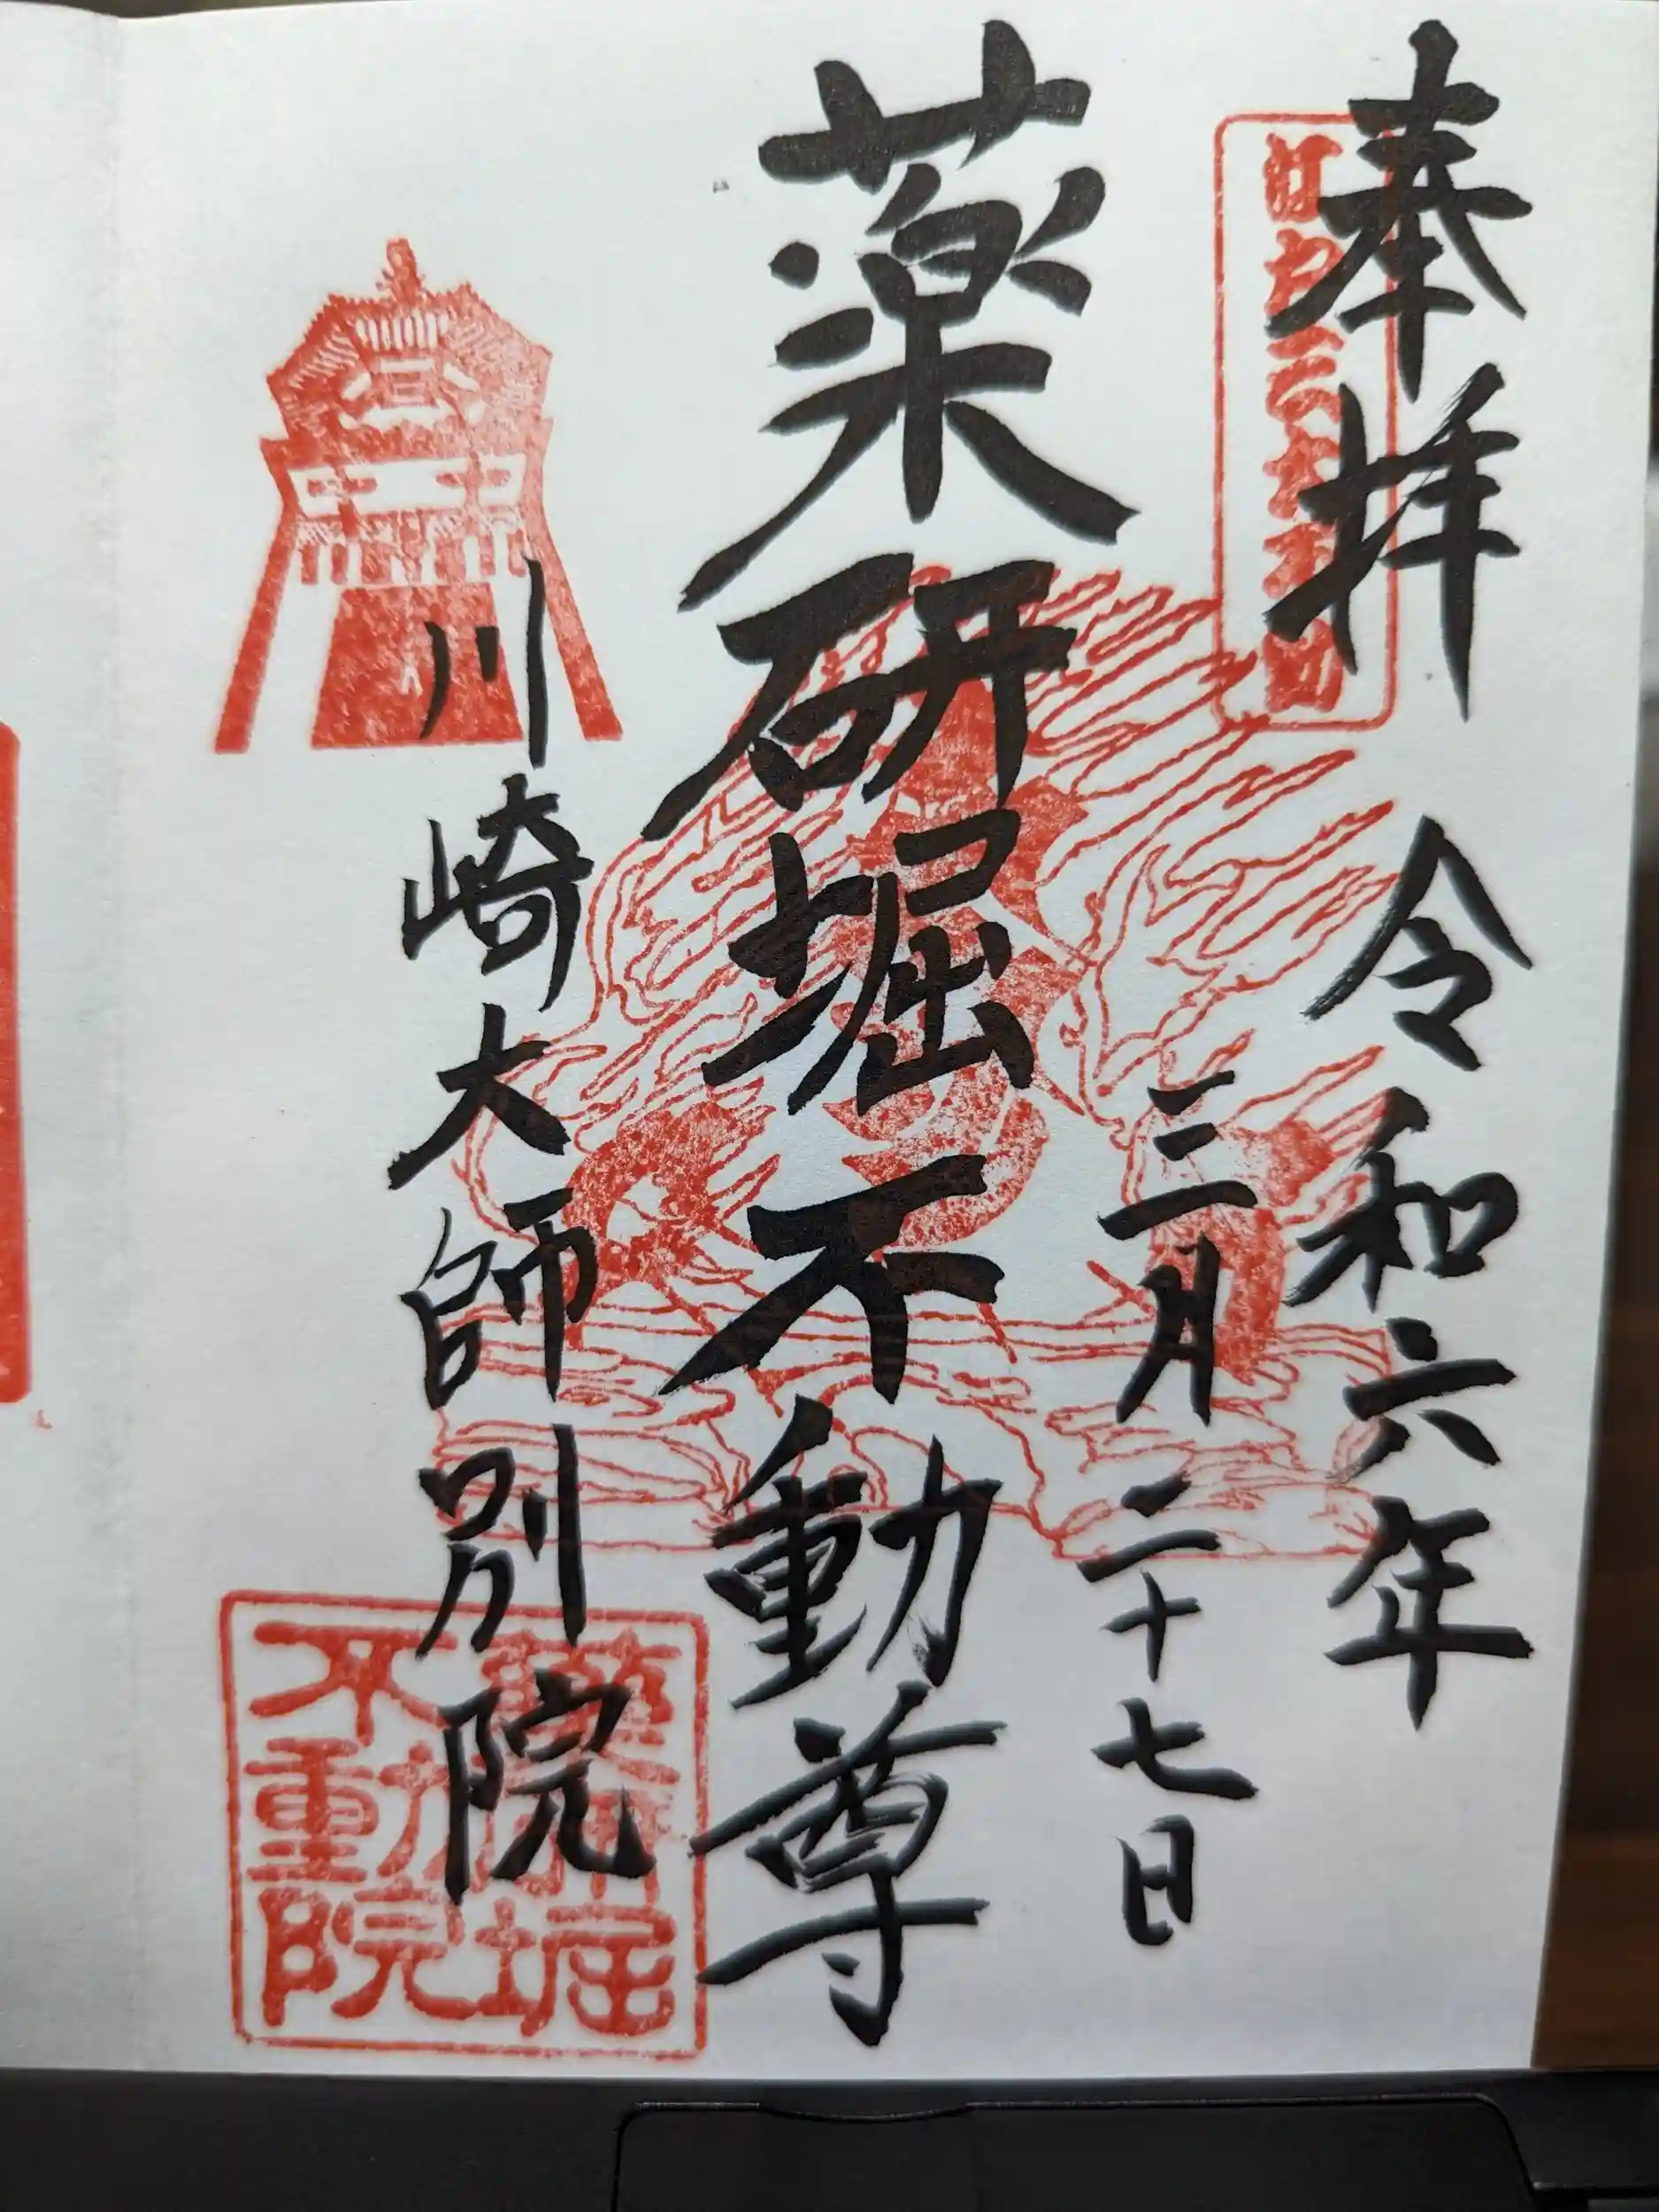 奉拝
令和六年
三月二十七日
薬研堀不動尊
川崎大師別院
堀
不動院